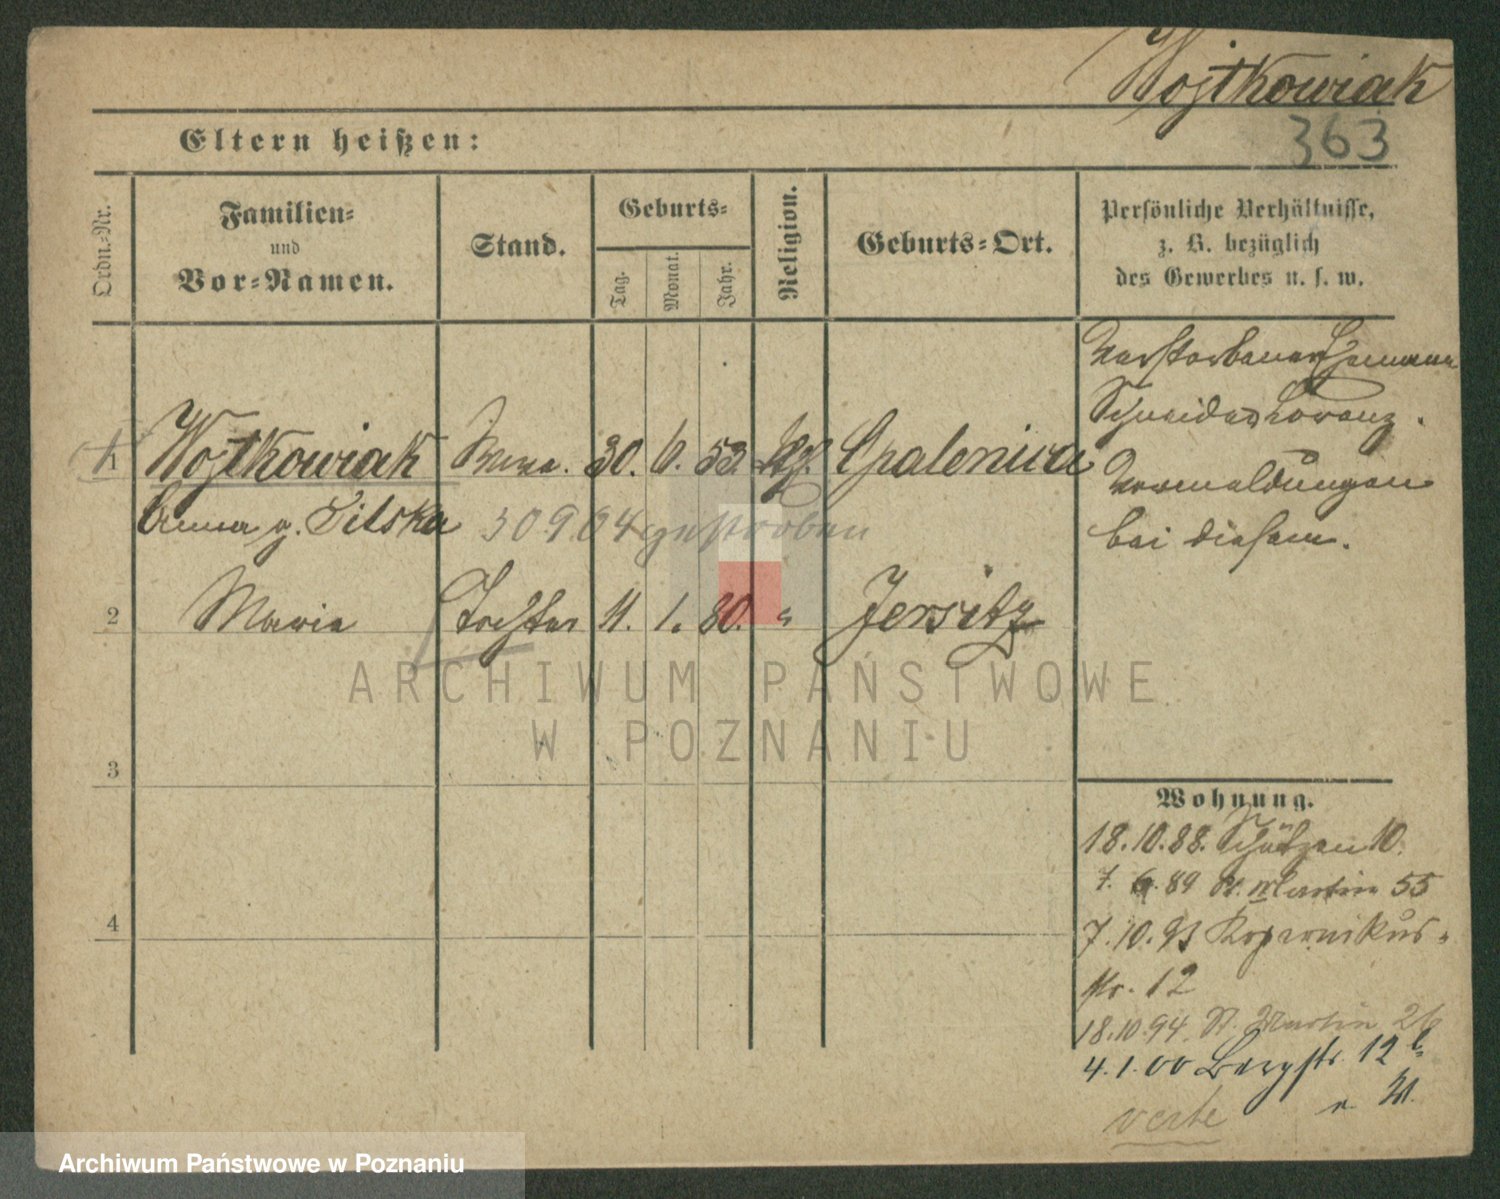 Wojtkowiak
363
Eltern heißen:
Ordn.-Nr.
Familien-
und
Vor-Namen.
Stand.
Geburts-
Tag.
Monat.
Jahr.
Religion.
Geburts-Ort.
Persönliche Verhältnisse,
z. B. bezüglich
des Gewerbes u. s. w.
1 Wojtkowiak Wwe. 30. 6. 53. Opalenica
Anna g. Pilska 30 9 04 gestorben
2 Maria Tochter 11. 1. 80. " Jersitz
3
4
Verstorbener Ehemann
Schneider Lorenz.
Vermeldungen
bei diesem.
Wohnung.
18.10.88. Schützen 10.
7. 6. 89 St. Martin 55
7.10.93 Kopernikus-
str. 12
18.10.94. St. Martin 26
4.1.00 Bergstr. 12 b
verte
ARCHIWUM PAŃSTWOWE
W POZNANIU
Archiwum Państwowe w Poznaniu